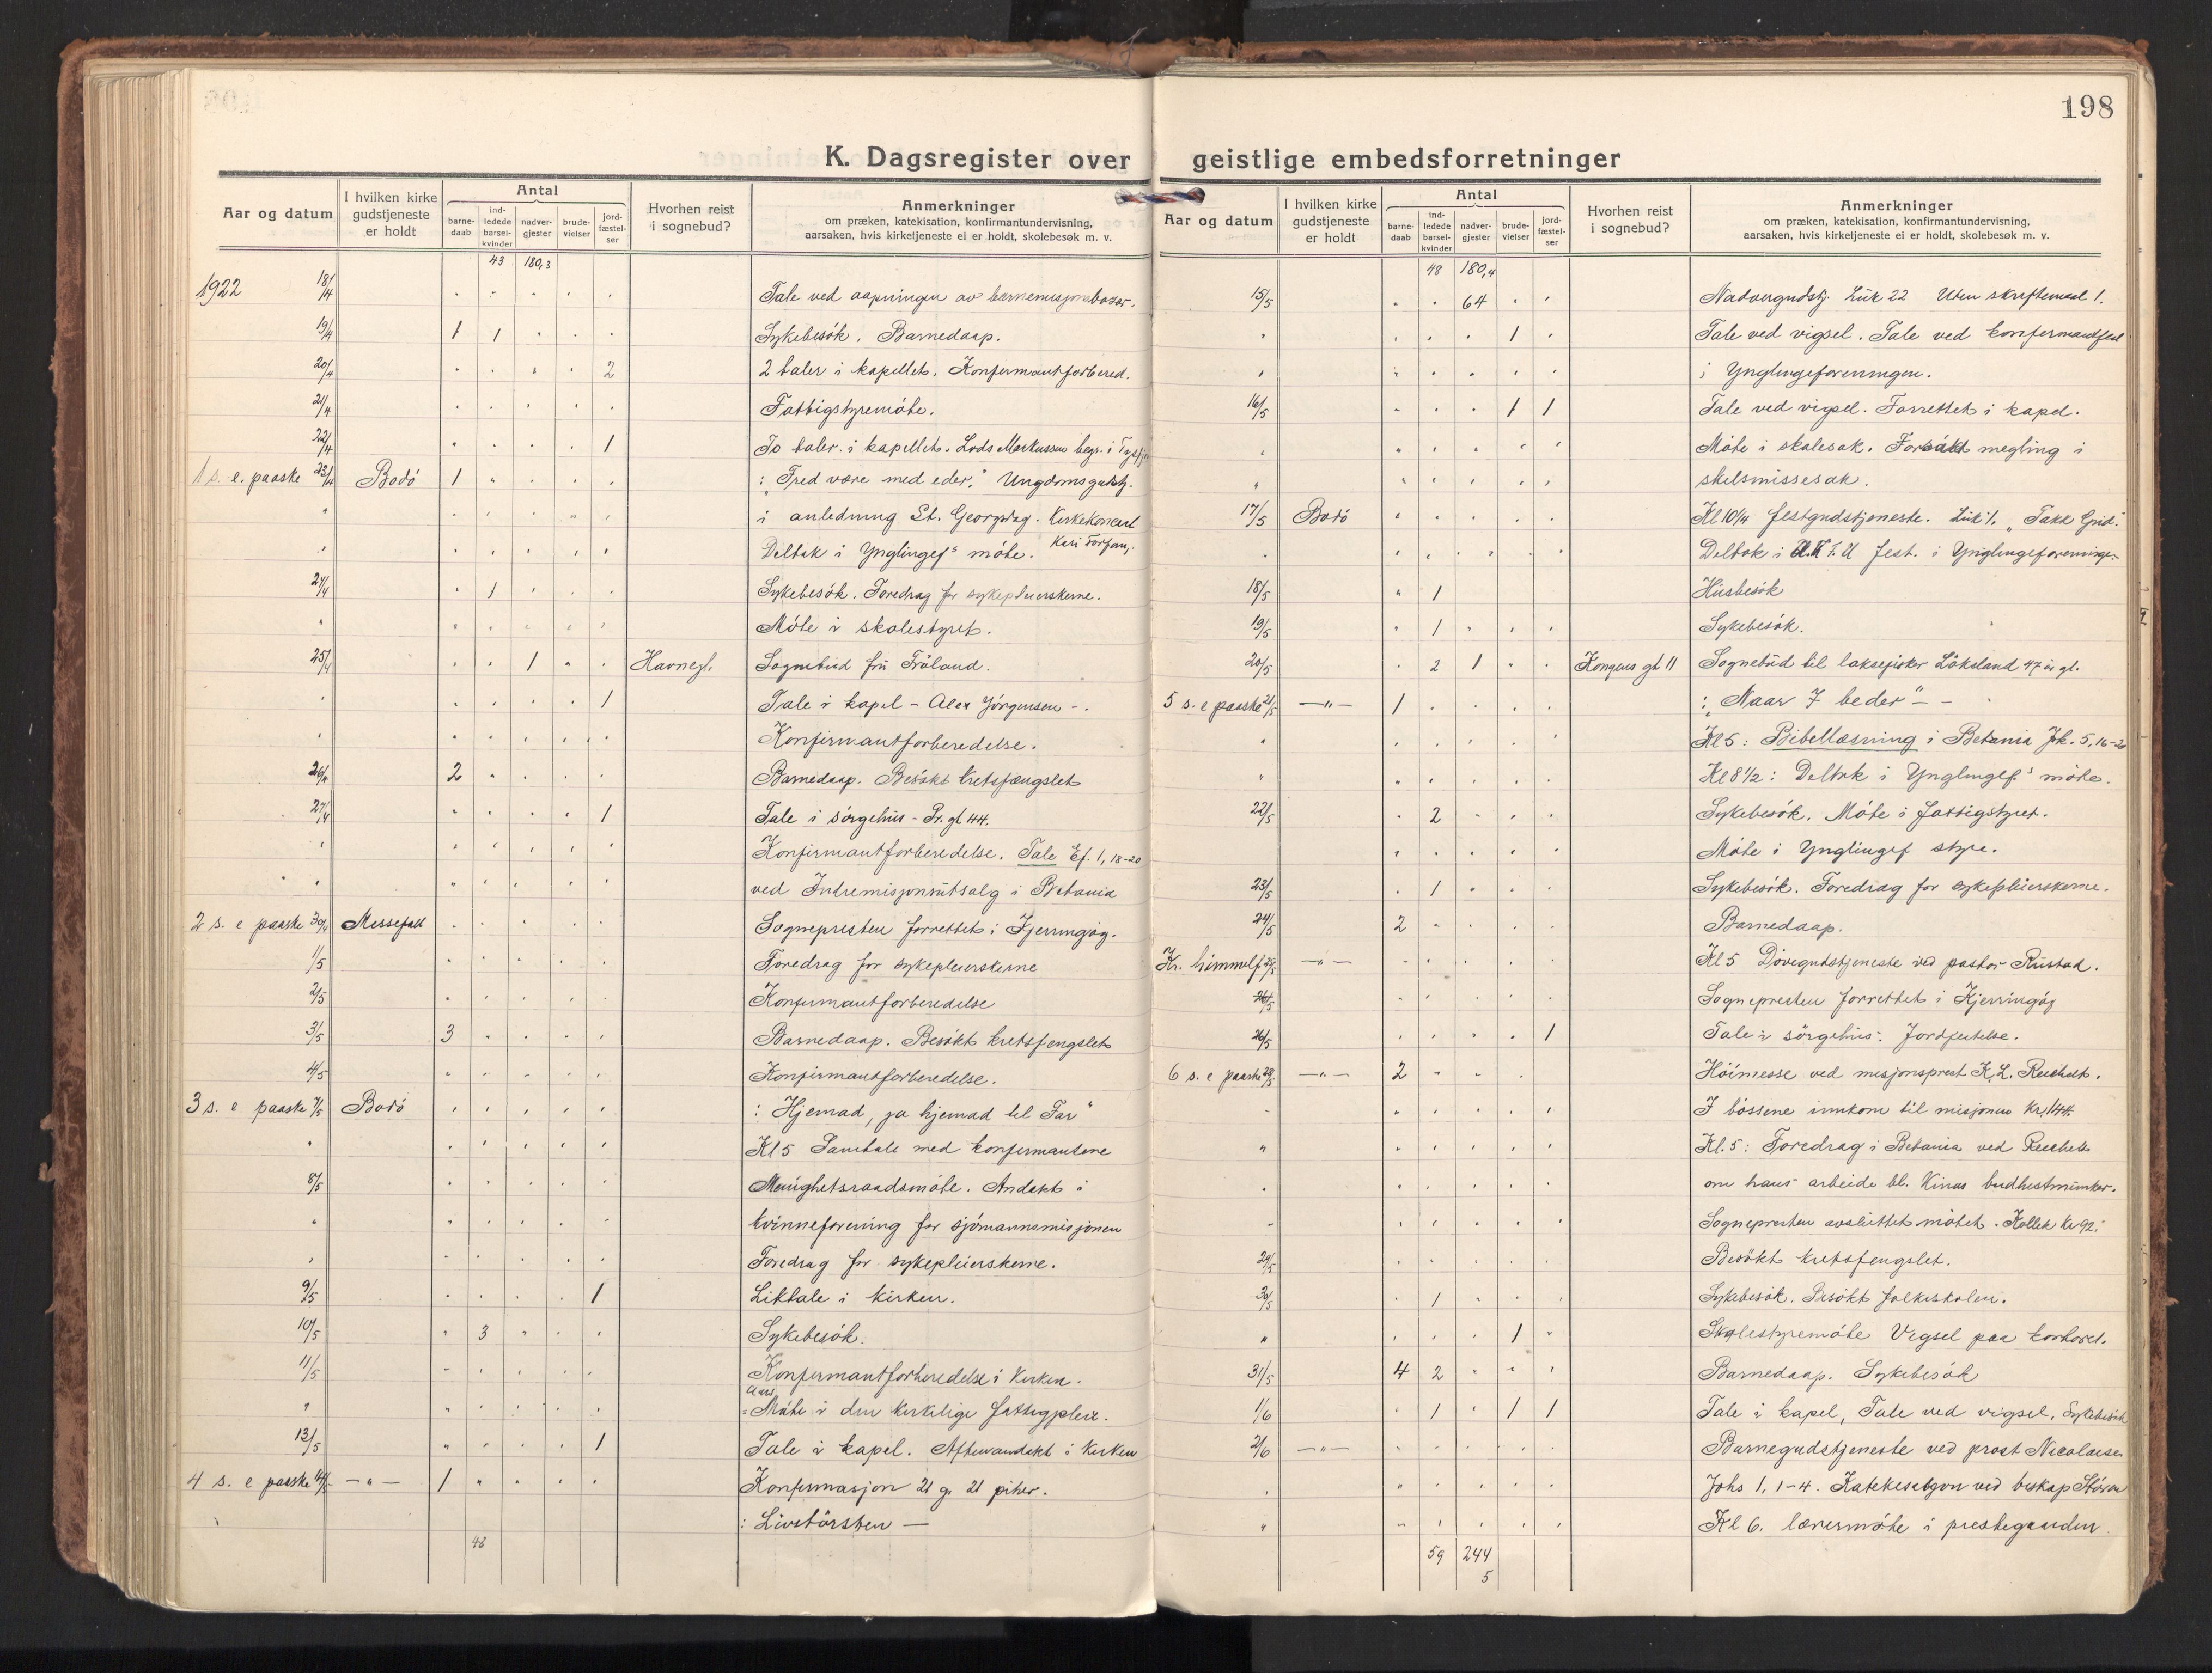 198
K. Dagsregister over geistlige embedsforretninger
Aar og datum | I hvilken kirke gudstjeneste er holdt | Antal | barnedaab | indledede barselkvinder | nadvergjester | brudevielser | jordfæstelser | Hvorhen reist i sognebud? | Anmerkninger om præken, katekisation, konfirmantundervisning, aarsaken, hvis kirketjeneste ei er holdt, skolebesøk m. v.
43 180,3
1922 18/4 Tale ved aapningen av barnemisjons
19/4 1 1 Sykebesök. Barnedaap.
20/4 2 2 taler i kapellet. Konfirmantforbered.
21/4 Fattigstyremöte.
22/4 1 To taler i kapellet. Lods Markussen begr. i
1 s. e. paaske 23/4 Bodö 1 : "Fred være med eder." Ungdomsgudstj.
" i anledning St. Georgsdag. Kirkekonsert
" Deltok i Ynglingefs möte. Kari
24/4 1 Sykebesök. Foredrag for sykepleierskerne.
" Möte i skolestyret.
25/4 1 Havnegt. Sognebud fru Fröland.
" 1 Tale i kapel - Alex Jörgensen -.
" Konfirmantforberedelse.
26/4 2 Barnedaap. Besökt kretsfængslet
27/4 1 Tale i sörgehus - Pr. gt 44.
" Konfirmantforberedelse. Tale Ef. 1, 18-20
" " ved Indremisjonsutsalg i Betania
2 s. e paaske 30/4 Messefald Sognepresten forrettet i Kjerringöy.
1/5 Foredrag for sykepleierskerne
2/5 Konfirmantforberedelse
3/5 3 Barnedaap. Besökt kretsfengslet
4/5 Konfirmantforberedelse.
3 s. e paaske 7/5 Bodö : Hjemad, ja hjemad til Far"
" Kl 5 Samtale med konfirmantene
8/5 Menighetsraadsmöte. Andakt i
" kvinneforening for sjömannsmisjonen
" Foredrag for sykepleierskerne.
9/5 1 Liktale i kirken.
10/5 3 Sykebesök.
11/5 Konfirmantforberedelse i Kirken.
" Aars = Möte i den kirkelige fattigpleie.
13/5 1 Tale i kapel. Aftenandakt i Kirken
4 s. e paaske 14/5 - " - 1 Konfirmasjon 21 g. 21 piker.
: Livstörsten —
48
Aar og datum | I hvilken kirke gudstjeneste er holdt | Antal | barnedaab | indledede barselkvinder | nadvergjester | brudevielser | jordfæstelser | Hvorhen reist i sognebud? | Anmerkninger om præken, katekisation, konfirmantundervisning, aarsaken, hvis kirketjeneste ei er holdt, skolebesøk m. v.
48 180,4
15/5 64 Nadvergudstj. Luk 22 Uten skriftemaal 1.
" 1 Tale ved vigsel. Tale ved konfirmantfest
" i Ynglingeforeningen.
16/5 1 1 Tale ved vigsel. Forrettet i kapel.
" Möte i skolesak. Forsökt megling i
" skilsmissesak.
17/5 Bodö Kl 10 1/4 festgudstjeneste. Luk 1. "Takk Gud."
" Deltok i fest. i Ynglingeforeningen
18/5 1 Husbesök
19/5 1 Sykebesök.
20/5 2 1 Kongens gt 11 Sognebud til laksefisker Lökeland 47 år gl.
5 s. e paaske 21/5 — " — 1 : "Naar I beder" - -
" Kl 5: Bibellæsning i Betania Jak. 5, 16-20
" Kl 8 1/2: Deltok i Ynglingef.s möte.
22/5 2 Sykebesök. Möte i fattigstyret.
Möte i Ynglingef styre.
23/5 1 Sykebesök. Foredrag for sykepleierskerne.
24/5 2 Barnedaap.
Kr. himmelf 25/5 — " — Kl 5 Dövegudstjeneste ved pastor Rustad.
Sognepresten forrettet i Kjerringöy
26/5 1 Tale i sörgehus. Jordfestelse.
6 s. e paaske 28/5 — " — 2 Höimesse ved misjonsprest K. L. Reichelt.
I bössene innkom til misjonen Kr. 144.
" Kl. 5: Foredrag i Betania ved Reichelt
" om hans arbeide bl. Kinas budhistmunker.
Sognepresten avsluttet mötet. Kollek Kr 92.
29/5 Besökt kretsfengslet.
30/5 1 Sykebesök. Besökt folkeskolen.
" 1 Skolestyremöte Vigsel paa kontoret.
31/5 4 2 Barnedaap. Sykebesök
1/6 1 1 1 Tale i kapel, Tale ved vigsel, Sykebesök
2/6 — " — Barnegudstjeneste ved prost Nicolaisen
Johs 1, 1-4. Katekesasjon ved biskop Stören
" Kl 6. lærermöte i prestegaarden.
59 244
5